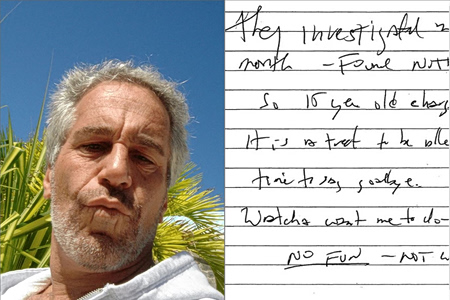 They investigated
month – Found
So 15 year old charg
It is a treat to be able
time to say goodbye.
Watcha want me to do –
NO FUN – NOT